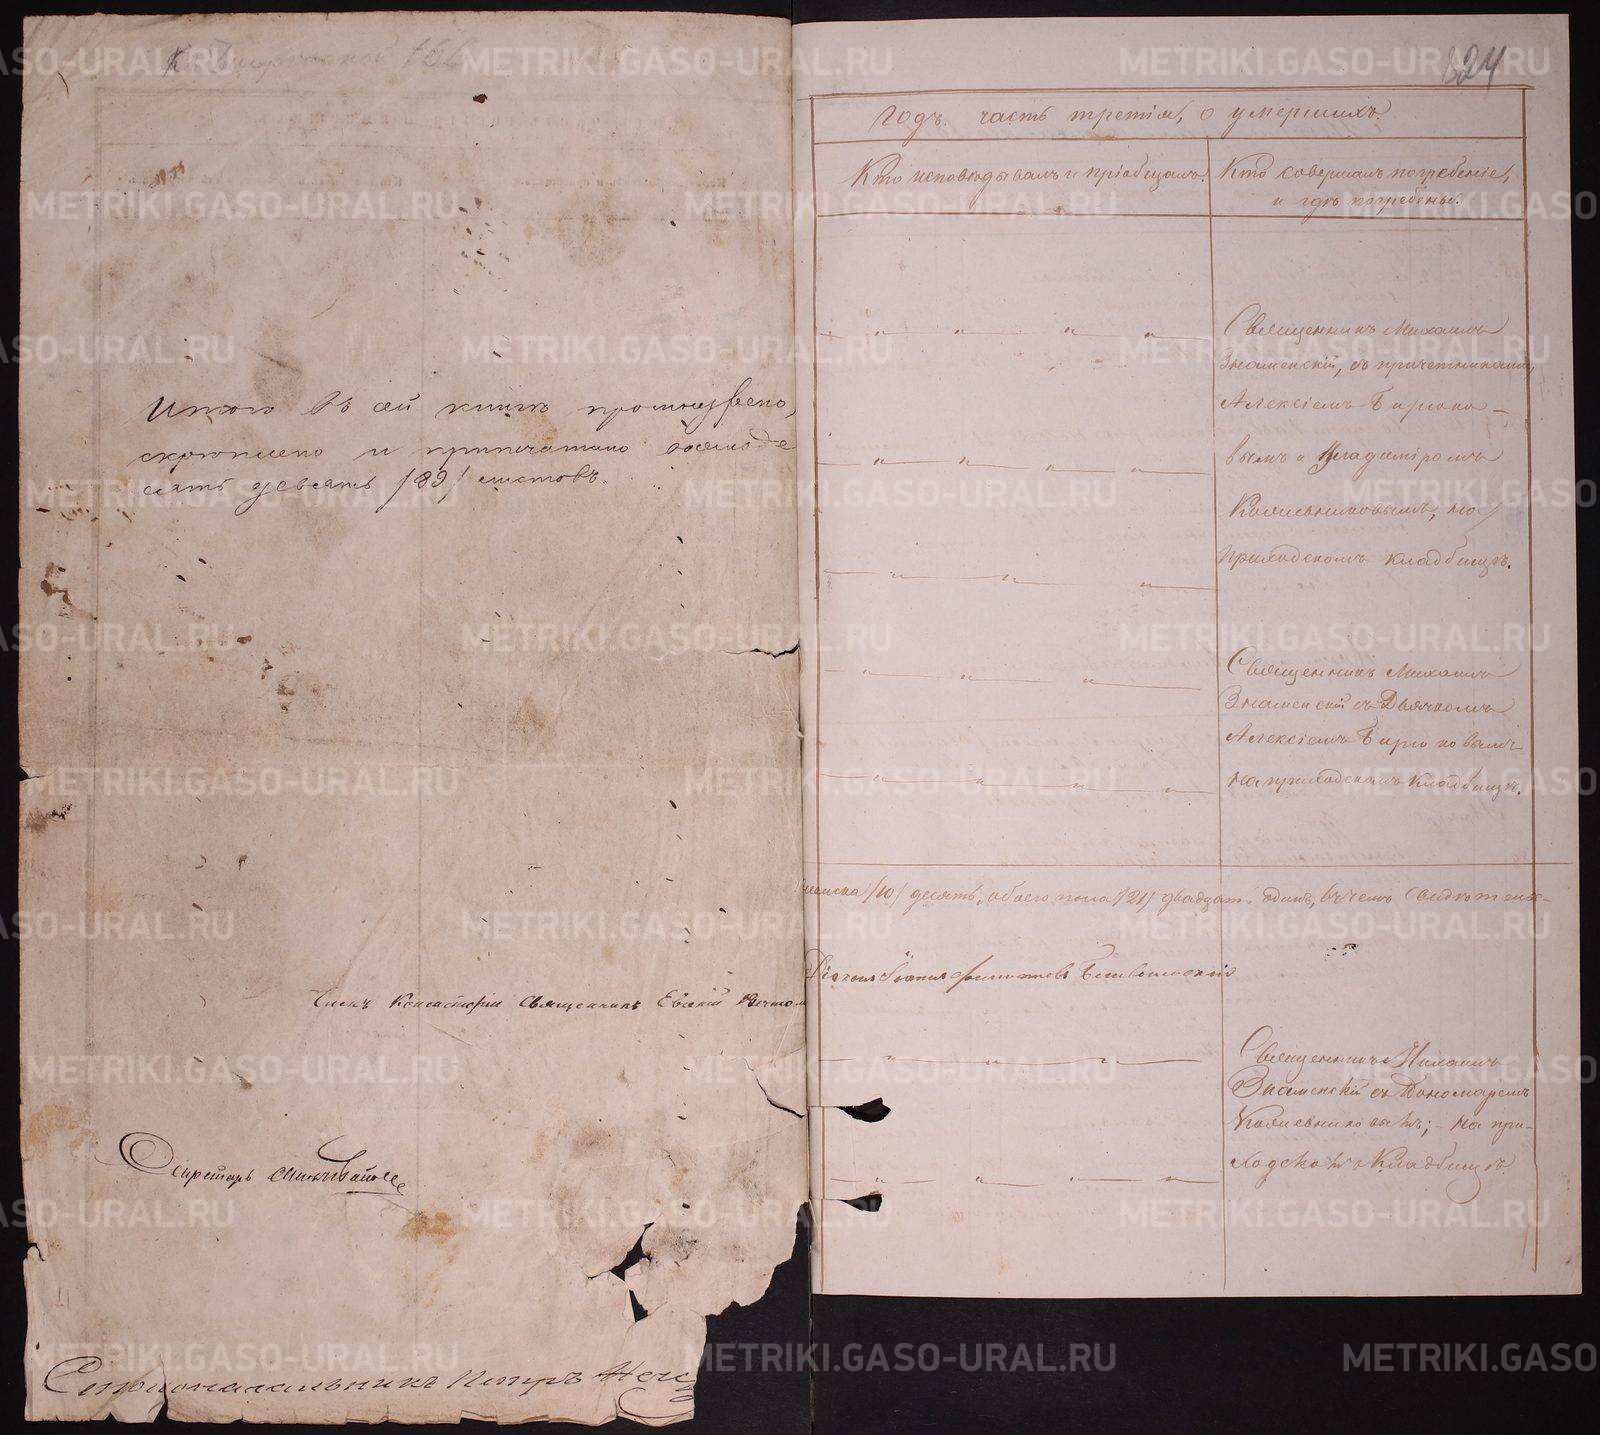 Итого въ сей книгѣ пронумеровано,
скрѣплено и припечатано восемьде
сятъ девять /89/ листовъ.
Членъ Консисторіи Священникъ Евгеній
Секретарь
Столоначальникъ Петръ
824
годъ. часть третія, о умершихъ.
Кто исповѣдывалъ и пріобщалъ.
Кто совершалъ погребеніе,
и гдѣ погребены.
Священникъ Михаилъ
Знаменскій, съ причетниками,
Алексіемъ Бирюко-
вымъ и Владиміромъ
Колмаковымъ, на
приходскомъ кладбищѣ.
Священникъ Михаилъ
Знаменскій съ Дьячкомъ
Алексіемъ Бирюковымъ
на приходскомъ кладбищѣ.
/10/ десять, обоего пола /21/ двадцать одинъ, въ чемъ свидѣтель-
Священникъ Михаилъ
Знаменскій съ Пономаремъ
на при-
ходскомъ кладбищѣ.
METRIKI.GASO-URAL.RU